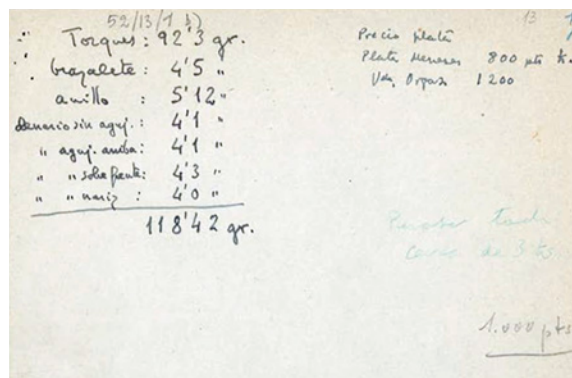 52/13/1 b)
13
Torques: 92'3 gr.
brazalete: 4'5 "
anillo : 5'12 "
denario sin aguj.: 4'1 "
" aguj. arriba: 4'1 "
" " sobre frente: 4'3 "
" " nariz : 4'0 "
118'42 gr.
Precio plata
Plata Meneses 800 pts k.
Vda Orgaz 1200
de 3 ts
1.000 pts